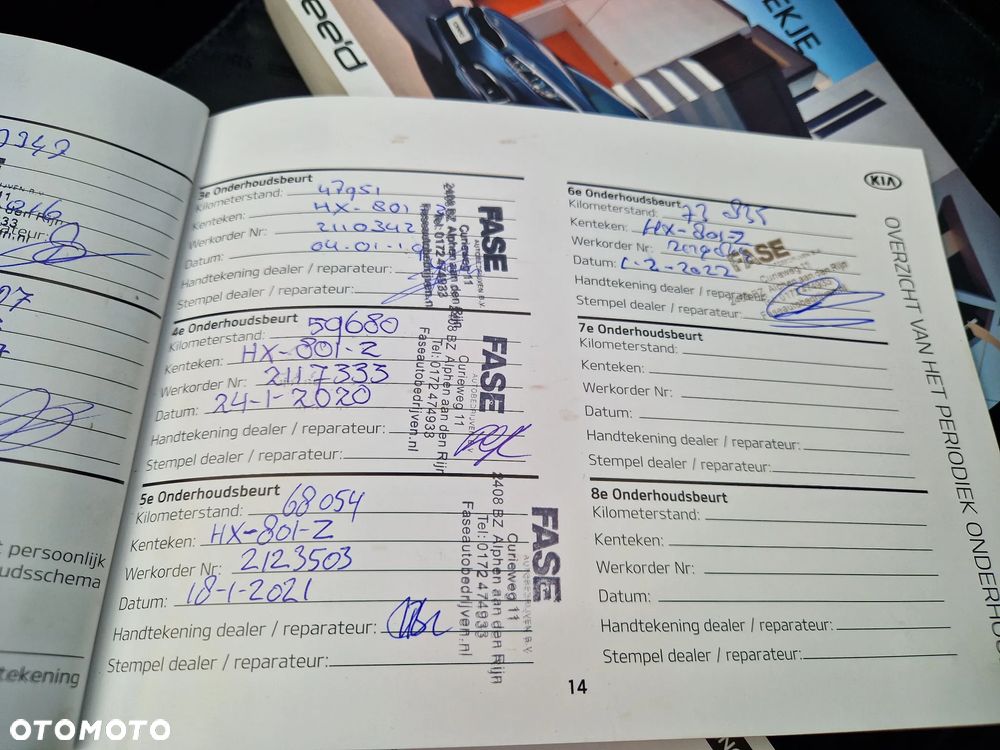 ee'd
EKJE
KIA
OVERZICHT VAN HET PERIODIEK ONDERHOU
3e Onderhoudsbeurt
Kilometerstand: 47951
Kenteken: HX-801
Werkorder Nr: 2110342
Datum: 04-01-19
Handtekening dealer / reparateur:
Stempel dealer / reparateur:
FASE
AUTOBEDRIJVEN B.V.
Curieweg 11
2408 BZ Alphen aan den Rijn
Tel: 0172 474933
Faseautobedrijven.nl
4e Onderhoudsbeurt
Kilometerstand: 59680
Kenteken: HX-801-Z
Werkorder Nr: 2117333
Datum: 24-1-2020
Handtekening dealer / reparateur:
Stempel dealer / reparateur:
FASE
AUTOBEDRIJVEN B.V.
Curieweg 11
2408 BZ Alphen aan den Rijn
Tel: 0172 474933
Faseautobedrijven.nl
5e Onderhoudsbeurt
Kilometerstand: 68054
Kenteken: HX-801-Z
Werkorder Nr: 2123503
Datum: 18-1-2021
Handtekening dealer / reparateur:
Stempel dealer / reparateur:
FASE
AUTOBEDRIJVEN B.V.
Curieweg 11
2408 BZ Alphen aan den Rijn
Tel: 0172 474933
Faseautobedrijven.nl
6e Onderhoudsbeurt
Kilometerstand: 73 835
Kenteken: HX-801-Z
Werkorder Nr:
Datum: 1-2-2022
Handtekening dealer / reparateur:
Stempel dealer / reparateur:
FASE
Curieweg 11
7e Onderhoudsbeurt
Kilometerstand:
Kenteken:
Werkorder Nr:
Datum:
Handtekening dealer / reparateur:
Stempel dealer / reparateur:
8e Onderhoudsbeurt
Kilometerstand:
Kenteken:
Werkorder Nr:
Datum:
Handtekening dealer / reparateur:
Stempel dealer / reparateur:
14
t persoonlijk
udsschema
tekening
OTOMOTO